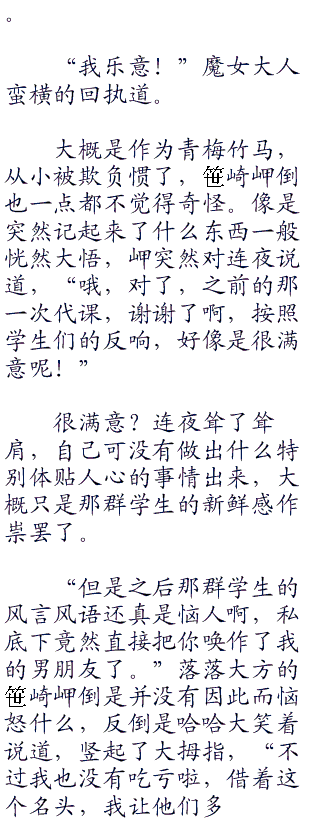 。
“我乐意！”魔女大人
蛮横的回执道。
大概是作为青梅竹马，
从小被欺负惯了，笹崎岬倒
也一点都不觉得奇怪。像是
突然记起来了什么东西一般
恍然大悟，岬突然对连夜说
道，“哦，对了，之前的那
一次代课，谢谢了啊，按照
学生们的反响，好像是很满
意呢！”
很满意？连夜耸了耸
肩，自己可没有做出什么特
别体贴人心的事情出来，大
概只是那群学生的新鲜感作
祟罢了。
“但是之后那群学生的
风言风语还真是恼人啊，私
底下竟然直接把你唤作了我
的男朋友了。”落落大方的
笹崎岬倒是并没有因此而恼
怒什么，反倒是哈哈大笑着
说道，竖起了大拇指，“不
过我也没有吃亏啦，借着这
个名头，我让他们多